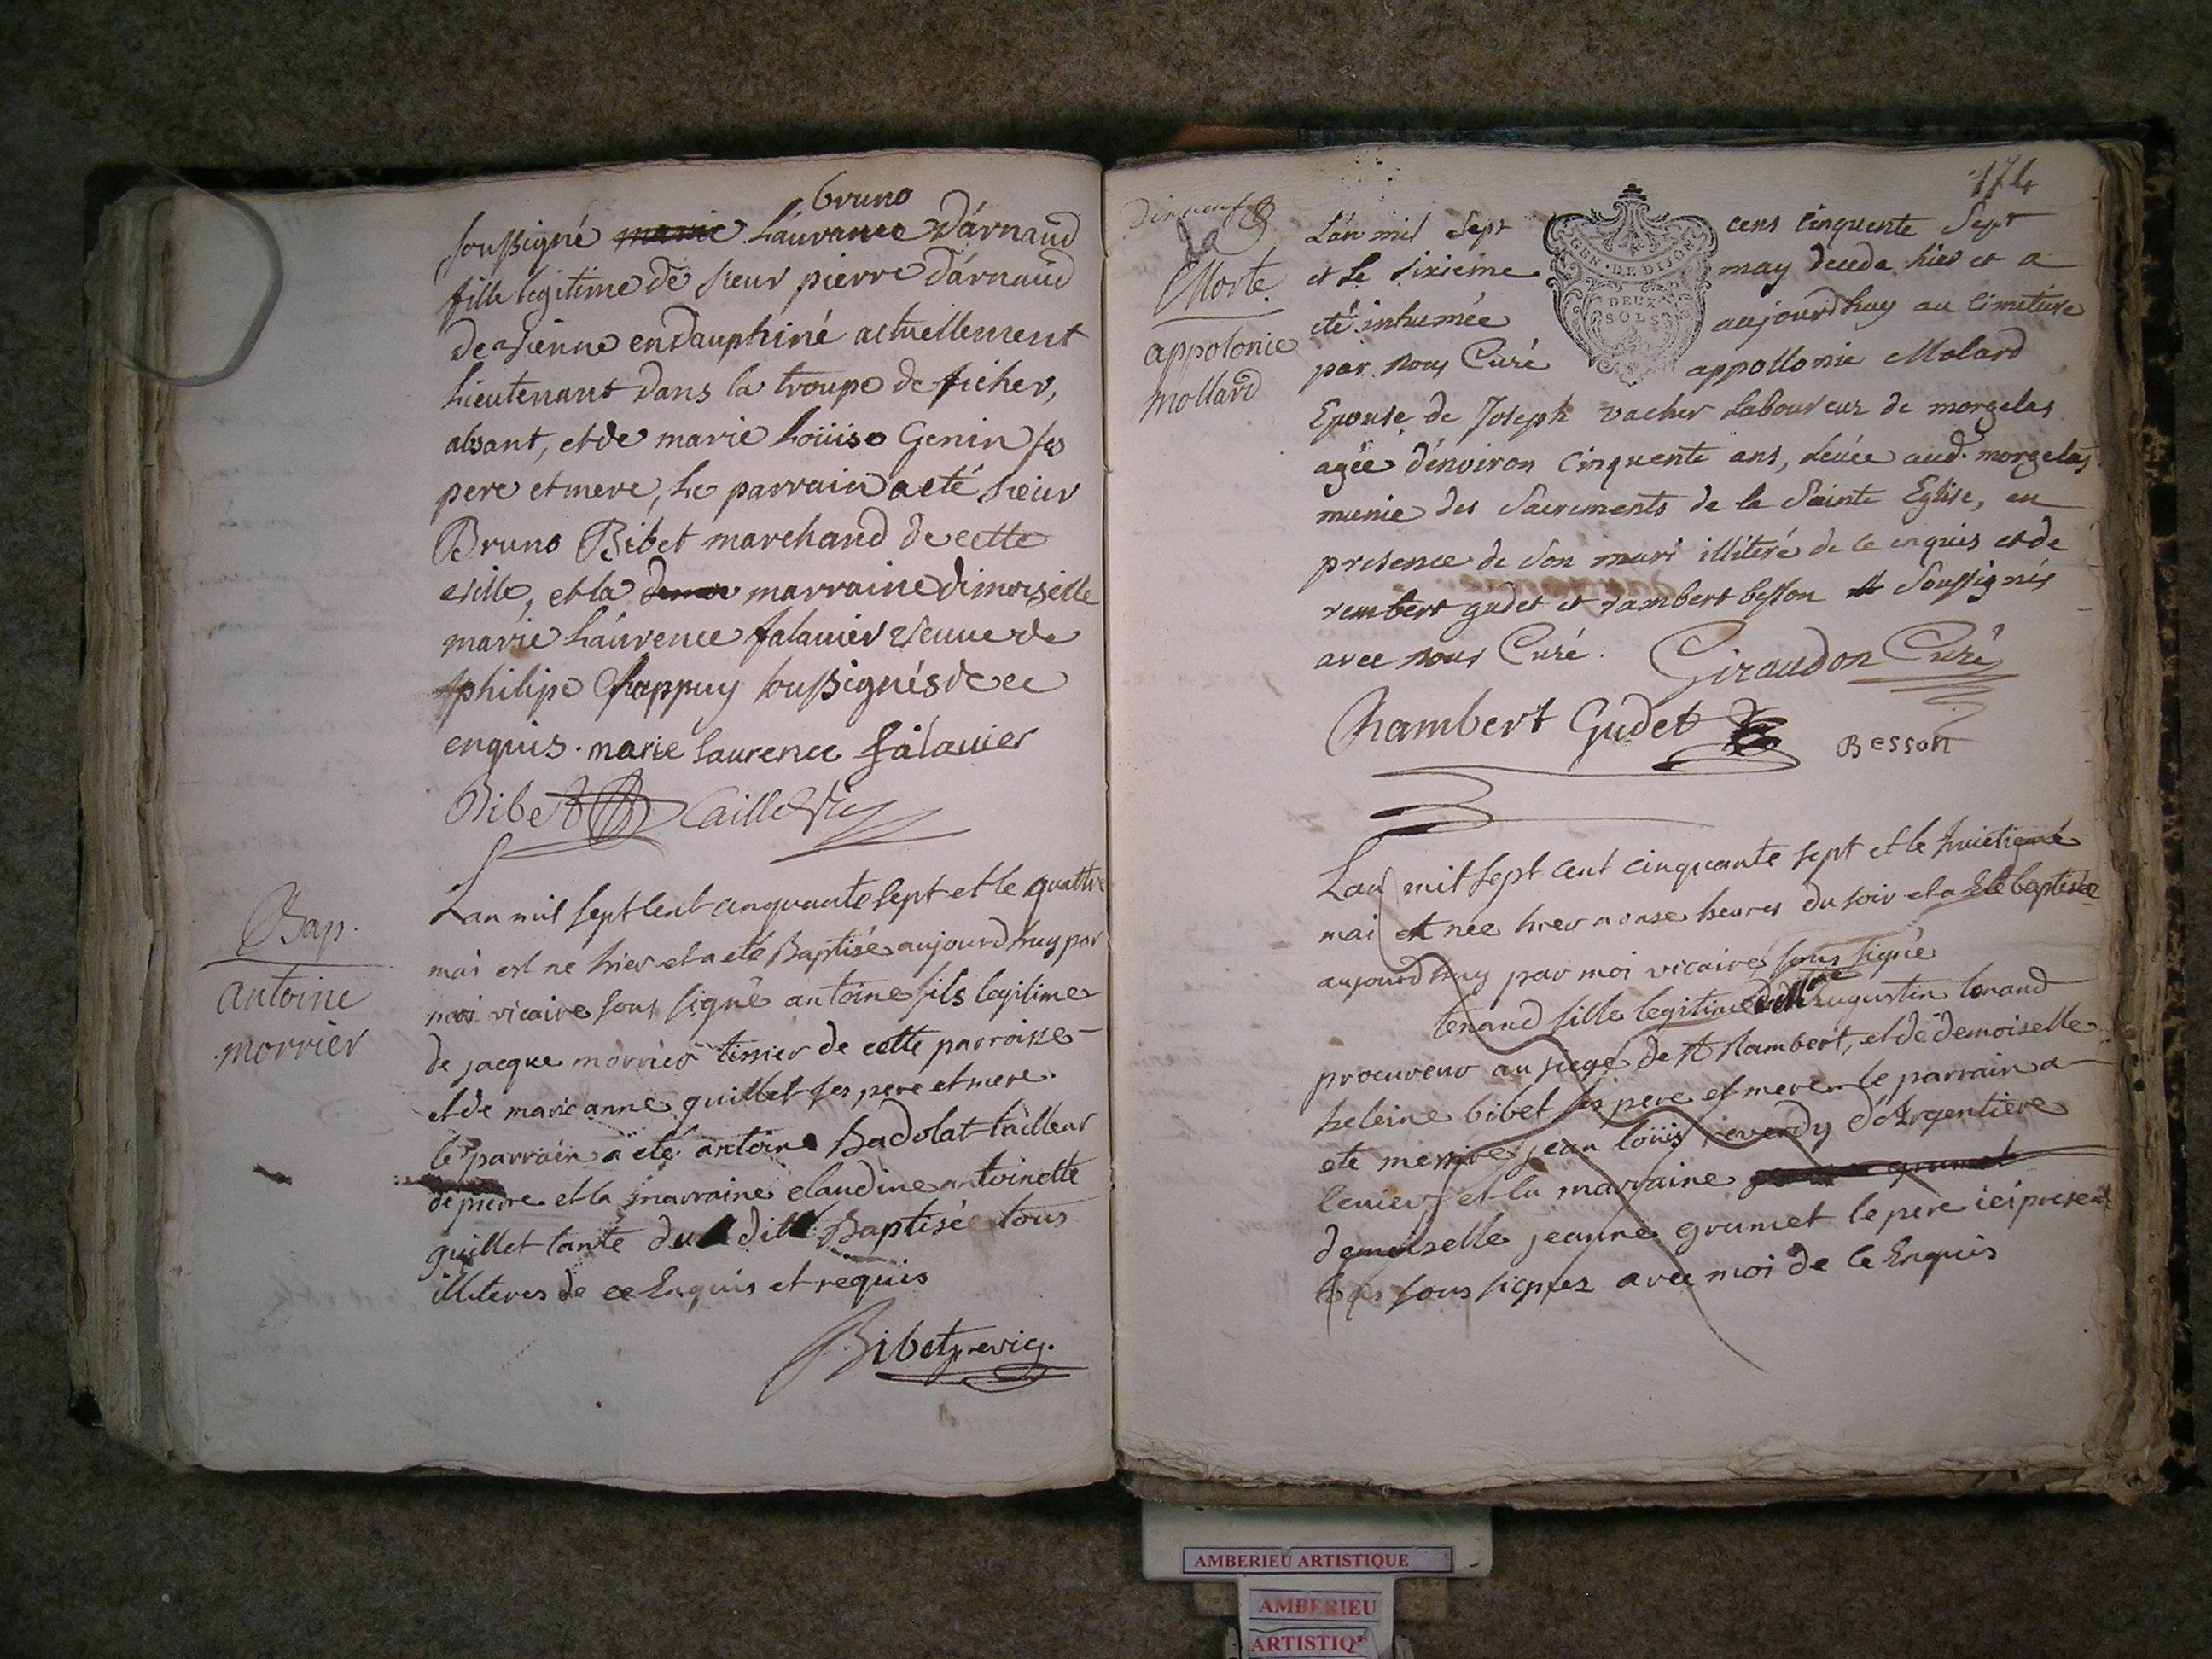 bruno
soussigné marie Laurance D'arnaud
fille legitime de sieur pierre D'arnaud
de vienne en Dauphiné actuellement
Lieutenant dans la troupe de ficher,
absant, et de marie Loüise Genin ses
pere et mere, Le parrain a eté sieur
Bruno Bibet marchand de cette
ville, et la marraine dimoiselle
marie Laurence falavier veuve de
philipe Chappuy soussignés de ce
enquis. marie laurence falavier
Bibet
Bap.
antoine
morrier
Lan mil sept cent cinquante sept et le quattre
mai est ne hier et a eté Baptisé aujourd huy par
moi vicaire sous signé antoine fils legitime
de jacque morrier tissier de cette parroisse
et de marie anne guillet ses pere et mere.
le parrain a eté antoine Badolat tailleur
de pierre et la marraine claudine antoinette
guillet tante du dit Baptisée tous
illiteres de ce Enquis et requis
Bibet previc.
174
Dixneuf
Morte
appolonie
mollard
L'an mil Sept cens cinquente Sept
et Le sixieme may deceda hier et a
eté inhumée aujourdhuy au cimetiere
par nous Curé appollonie Molard
Epouse de Joseph vacher Laboureur de morgelas
agée d'environ cinquente ans, Levée aud. morgelas
munie des Sacrements de la Sainte Eglise, en
presence de son mari illiteré de ce enquis et de
rembert gudet et rambert besson Soussignés
avec nous Curé. Giraudon Curé
Rambert Gudet
Besson
GEN. DE DIJON
DEUX
SOLS
Lan mil sept cent cinquante sept et le huictieme
mai est née hier a onse heures du soir et a Eté baptisée
aujourd huy par moi vicaire sous signé
tenand fille legitime de Augustin tenand
procureur au siege de St Rambert, et de demoiselle
heleine bibet ses pere et mere le parrain a
eté messire jean loüis reverdy d'Argentiere
et la marraine grumet
demoiselle jeanne grumet le pere ici present
tous sous signez avec moi de ce Enquis
AMBERIEU ARTISTIQUE
AMBERIEU
ARTISTIQ